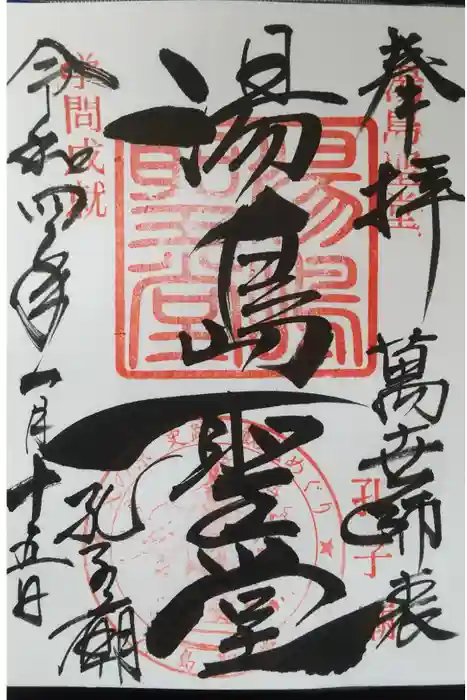 奉拝
萬世師表
湯島聖堂
孔子廟
令和四年一月十五日
学問成就
湯島聖堂